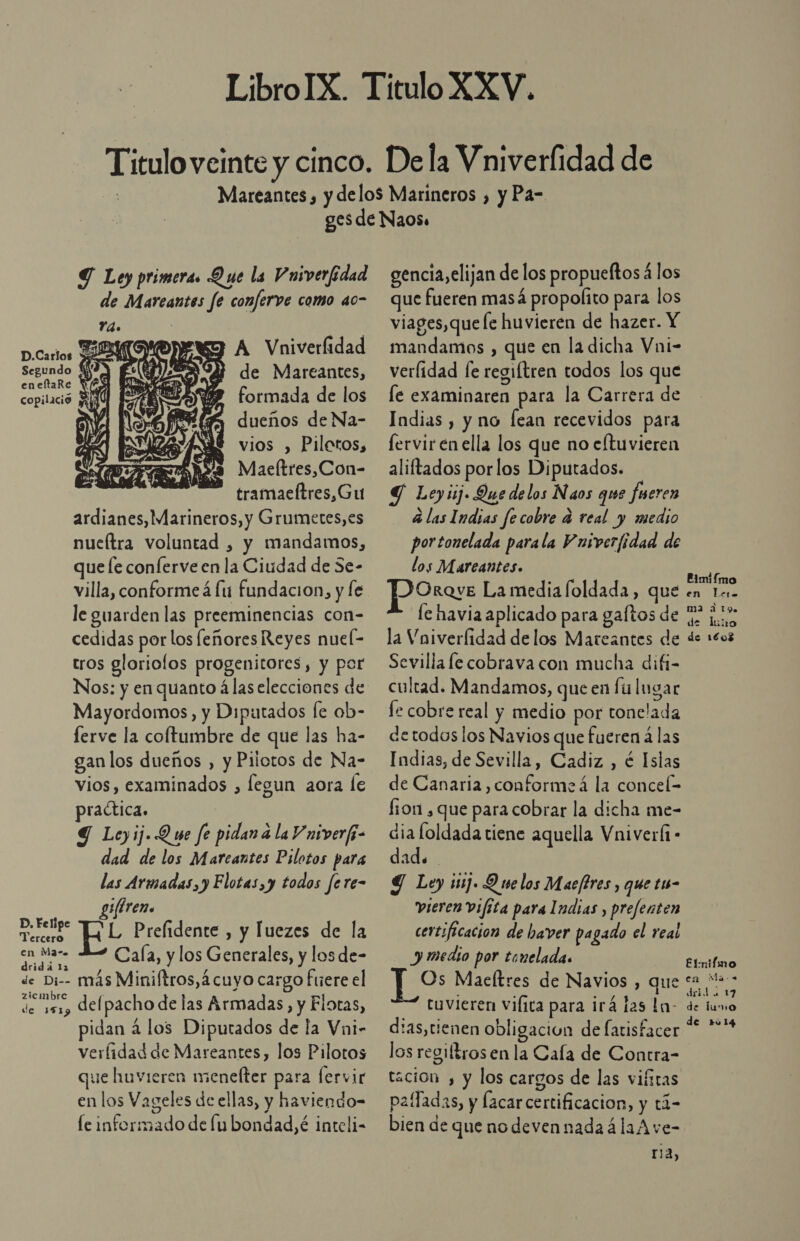 Libro IX. Titulo XXV.
Titulo veinte y cinco. De la Vniverſidad de
Mareantes, y de los Marineros, y Pa-
ges de Naos.
¶ Ley primera. Que la Vniverſidad
de Mareantes ſe conſerve como ao-
ra.
D. Carlos
Segundo
en eſta Re
copilació
A Vniverſidad
de Mareantes,
formada de los
dueños de Na-
vios, Pilotos,
Maeſtres, Con-
tramaeſtres, Gu
ardianes, Marineros, y Grumetes, es
nueſtra voluntad, y mandamos,
que ſe conſerve en la Ciudad de Se-
villa, conforme á ſu fundacion, y ſe
le guarden las preeminencias con-
cedidas por los ſeñores Reyes nueſ-
tros glorioſos progenitores, y por
Nos: y en quanto á las elecciones de
Mayordomos, y Diputados ſe ob-
ſerve la coſtumbre de que las ha-
gan los dueños, y Pilotos de Na-
vios, examinados, ſegun aora ſe
practica.
¶ Ley ij. Que ſe pidan à la Vniverſi-
dad de los Mareantes Pilotos para
las Armadas, y Flotas, y todos ſe re-
giſtren.
D. Felipe
Tercero
en Ma-
drid á 12
de Di-
ziembre
de
EL Preſidente, y Iuezes de la
Caſa, y los Generales, y los de-
más Miniſtros, á cuyo cargo fuere el
deſpacho de las Armadas, y Flotas,
pidan á los Diputados de la Vni-
verſidad de Mareantes, los Pilotos
que huvieren meneſter para ſervir
en los Vageles de ellas, y haviendo-
ſe informado de ſu bondad, é inteli-
gencia, elijan de los propueſtos á los
que fueren mas á propoſito para los
viages, que ſe huvieren de hazer. Y
mandamos, que en la dicha Vni-
verſidad ſe regiſtren todos los que
ſe examinaren para la Carrera de
Indias, y no ſean recevidos para
ſervir en ella los que no eſtuvieren
aliſtados por los Diputados.
¶ Ley iij. Que de los Naos que fueren
à las Indias ſe cobre à real y medio
por tonelada para la Vniverſidad de
los Mareantes.
El miſmo
en Ler-
ma á 19.
de Iunio
de 1608
PORQVE La media ſoldada, que
ſe havia aplicado para gaſtos de
la Vniverſidad de los Mareantes de
Sevilla ſe cobrava con mucha difi-
cultad. Mandamos, que en ſu lugar
ſe cobre real y medio por tonelada
de todos los Navios que fueren á las
Indias, de Sevilla, Cadiz, é Islas
de Canaria, conforme á la conceſ-
ſion, que para cobrar la dicha me-
dia ſoldada tiene aquella Vniverſi-
dad.
¶ Ley iiij. Que los Maeſtres, que tu-
vieren viſita para Indias, preſenten
certificacion de haver pagado el real
y medio por tonelada.
El miſmo
en Ma-
drid á 17
de Iunio
de 1614
LOs Maeſtres de Navios, que
tuvieren viſita para ir á las In-
dias, tienen obligacion de ſatisfacer
los regiſtros en la Caſa de Contra-
tacion, y los cargos de las viſitas
paſſadas, y ſacar certificacion, y tã-
bien de que no deven nada á la Ave-
ria,